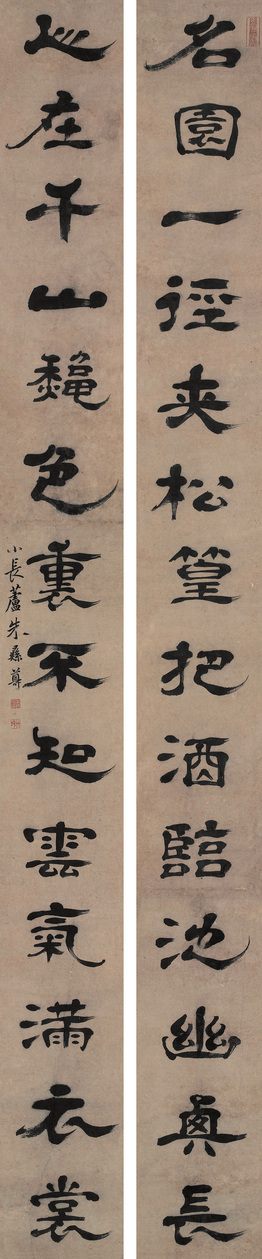 名園一徑夾松篁把酒臨池幽興長
心在千山龝色裏不知雲氣滿衣裳
小長蘆朱彝尊